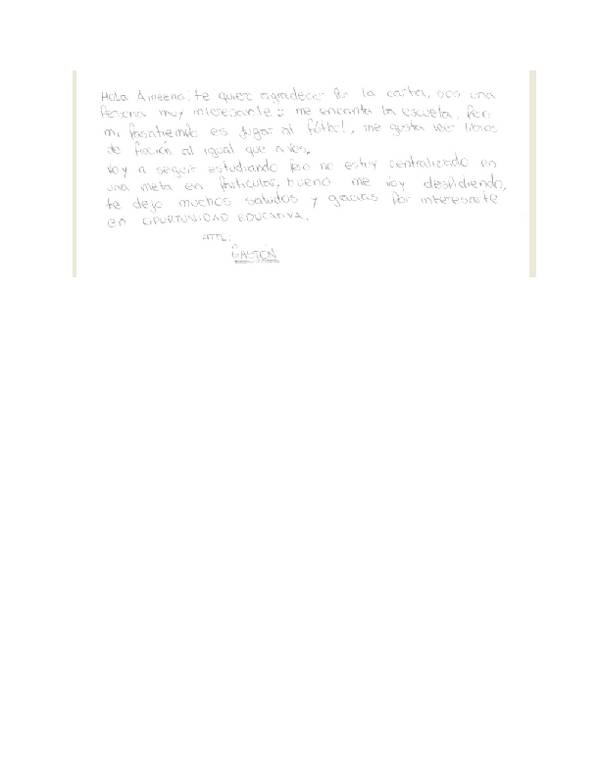 Hola Ameena; te quier agradecer por la carta, sos una
Persona muy interesante; me encanta la escuela, Pero
mi Pasatiempo es jugar al fútbol, me gusta leer libros
de ficción al igual que a vos.
Voy a seguir estudiando Pero no estoy centralizado en
una meta en Particular, bueno me voy despidiendo,
te dejo muchos saludos y gracias Por interesarte
en OPORTUNIDAD EDUCATIVA.
ATTE.
GASTON